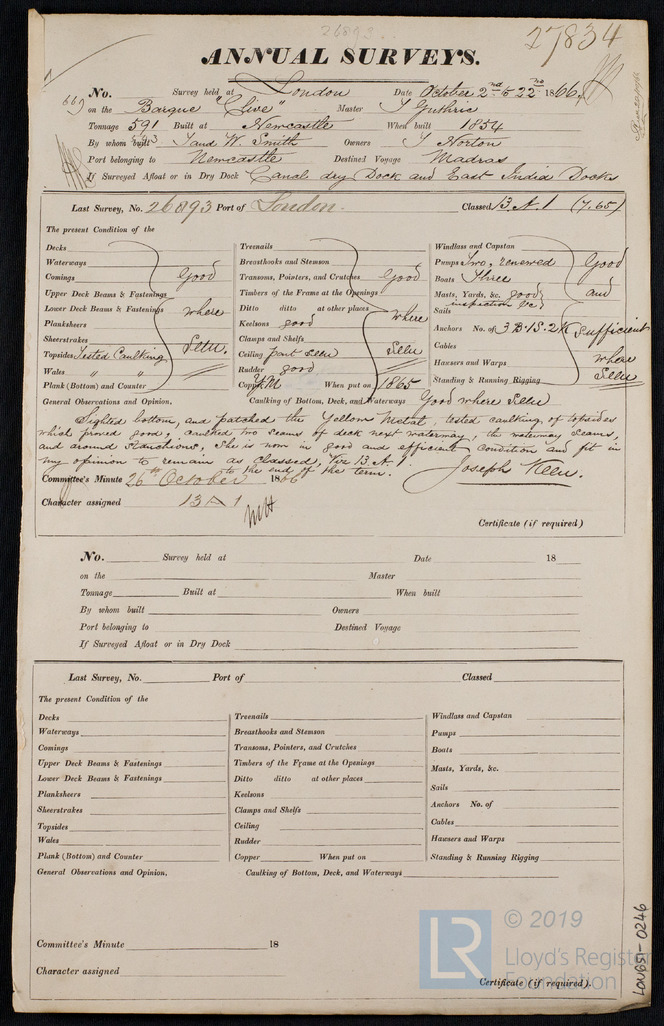 26893
27834
ANNUAL SURVEYS.
No. Survey held at London Date October 2nd to 22nd 1866
669 on the Barque "Clive" Master J Guthrie
Tonnage 591 Built at Newcastle When built 1854
By whom built T and W. Smith Owners J Norton
Port belonging to Newcastle Destined Voyage Madras
If Surveyed Afloat or in Dry Dock Canal dry Dock and East India Docks
Last Survey, No. 26893 Port of London. Classed 13 A 1 (7.65)
The present Condition of the
Decks
Waterways
Comings
Upper Deck Beams & Fastenings
Lower Deck Beams & Fastenings
Planksheers
Sheerstrakes
Topsides Tested Caulking
Wales " "
Plank (Bottom) and Counter
Good
where
Seen.
Treenails
Breasthooks and Stemson
Transoms, Pointers, and Crutches
Timbers of the Frame at the Openings
Ditto ditto at other places
Keelsons good
Clamps and Shelfs
Ceiling part seen
Rudder good
Copper Y.M When put on 1865
Good
where
Seen
Windlass and Capstan
Pumps Two, renewed
Boats Three
Masts, Yards, &c. good
inspection &c
Sails
Anchors No. of 3 B. 1 S. 2 K
Cables
Hawsers and Warps
Standing & Running Rigging
Good
and
Sufficient
where
Seen
General Observations and Opinion. Caulking of Bottom, Deck, and Waterways Good where Seen
Sighted bottom, and patched the Yellow Metal, tested caulking of topsides
which proved good, caulked two seams of deck next waterway, the waterway seams,
and around Stanchions, She is now in good and efficient condition and fit in
my opinion to remain as classed, Viz 13 A 1
to the end of the term.
Joseph Keen.
Committee's Minute 26th October 1866
Character assigned 13 A 1
Certificate (if required)
No. Survey held at Date 18
on the Master
Tonnage Built at When built
By whom built Owners
Port belonging to Destined Voyage
If Surveyed Afloat or in Dry Dock
Last Survey, No. Port of Classed
The present Condition of the
Decks
Waterways
Comings
Upper Deck Beams & Fastenings
Lower Deck Beams & Fastenings
Planksheers
Sheerstrakes
Topsides
Wales
Plank (Bottom) and Counter
Treenails
Breasthooks and Stemson
Transoms, Pointers, and Crutches
Timbers of the Frame at the Openings
Ditto ditto at other places
Keelsons
Clamps and Shelfs
Ceiling
Rudder
Copper When put on
Windlass and Capstan
Pumps
Boats
Masts, Yards, &c.
Sails
Anchors No. of
Cables
Hawsers and Warps
Standing & Running Rigging
General Observations and Opinion. Caulking of Bottom, Deck, and Waterways
Committee's Minute 18
Character assigned
Certificate (if required).
LR © 2019
Lloyd's Register
Foundation
LON651-0246